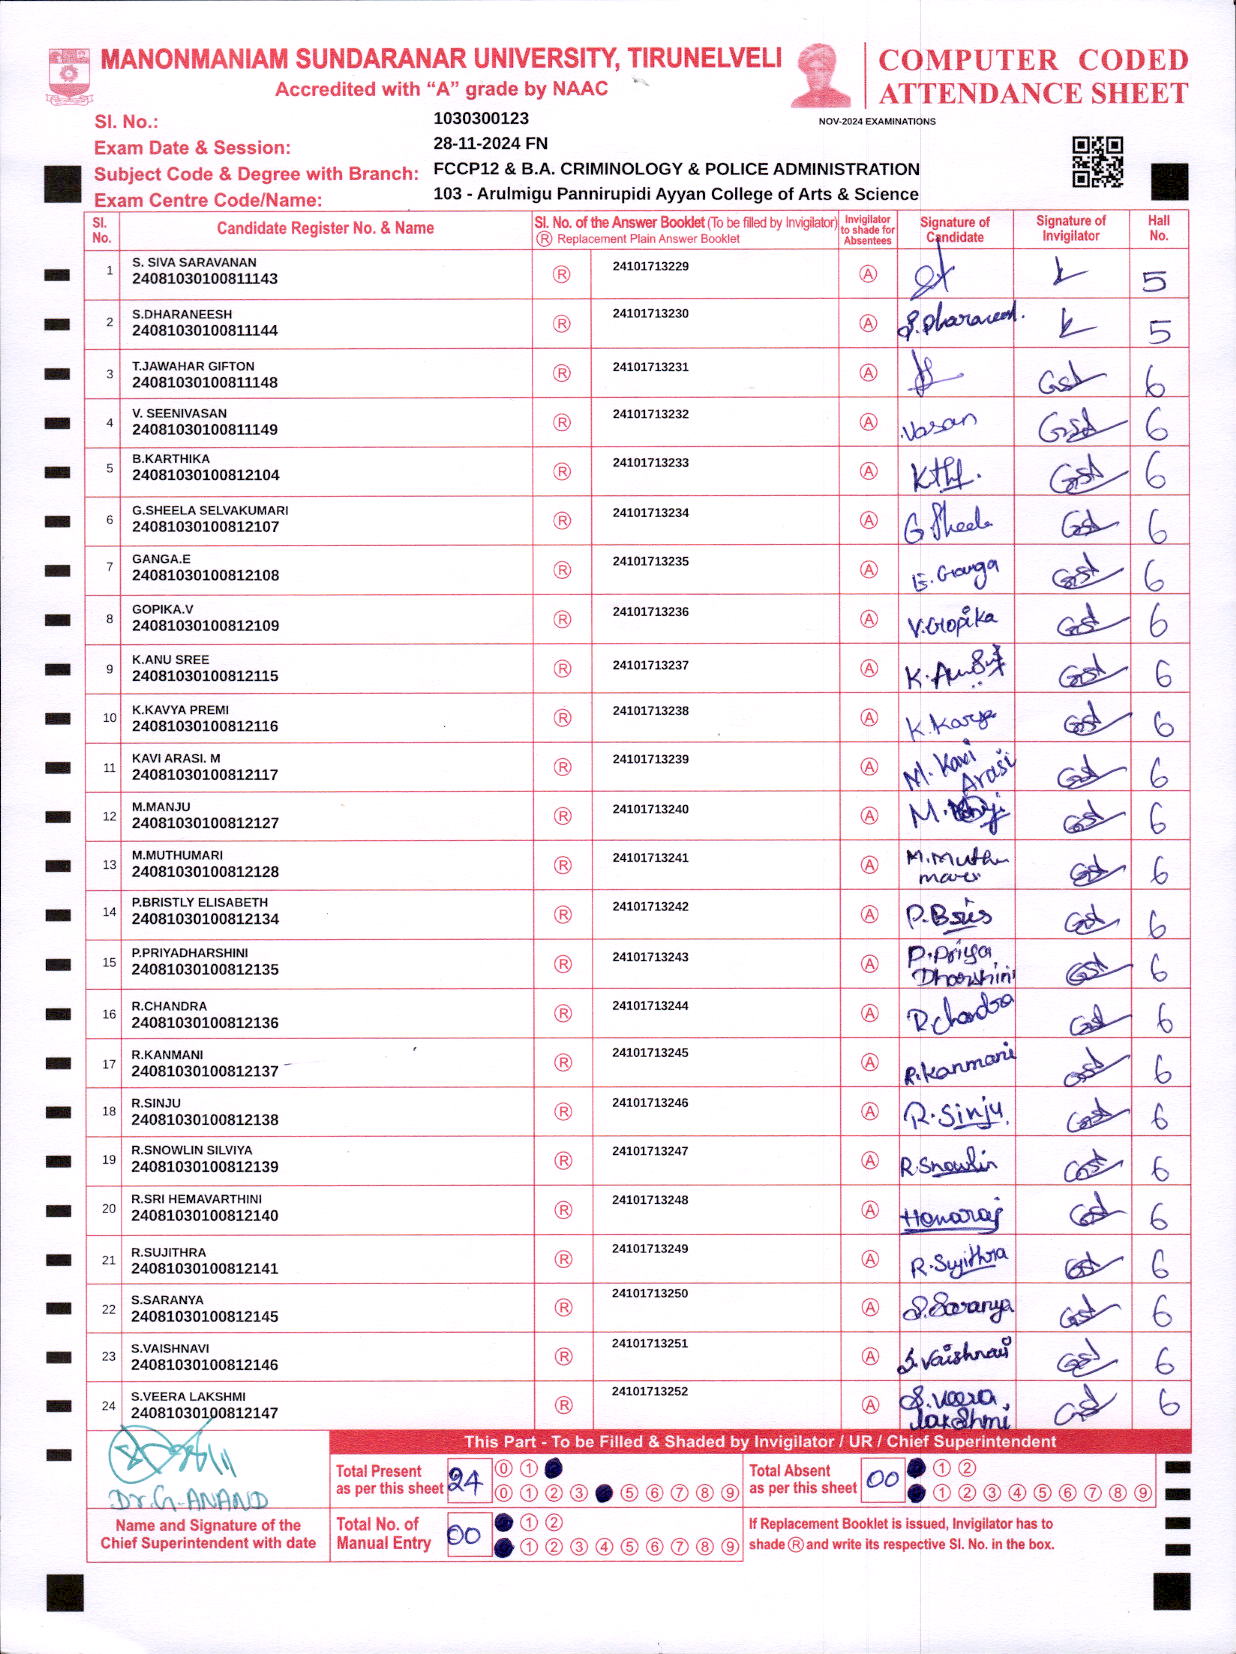 MANONMANIAM SUNDARANAR UNIVERSITY, TIRUNELVELI
Accredited with “A” grade by NAAC
COMPUTER CODED
ATTENDANCE SHEET
NOV-2024 EXAMINATIONS
Sl. No.: 1030300123
Exam Date & Session: 28-11-2024 FN
Subject Code & Degree with Branch: FCCP12 & B.A. CRIMINOLOGY & POLICE ADMINISTRATION
Exam Centre Code/Name: 103 - Arulmigu Pannirupidi Ayyan College of Arts & Science
Sl. No. Candidate Register No. & Name Sl. No. of the Answer Booklet (To be filled by Invigilator) Ⓡ Replacement Plain Answer Booklet Invigilator to shade for Absentees Signature of Candidate Signature of Invigilator Hall No.
1 S. SIVA SARAVANAN Ⓡ 24101713229 Ⓐ 5
24081030100811143
2 S.DHARANEESH Ⓡ 24101713230 Ⓐ S.Dharaneesh. 5
24081030100811144
3 T.JAWAHAR GIFTON Ⓡ 24101713231 Ⓐ 6
24081030100811148
4 V. SEENIVASAN Ⓡ 24101713232 Ⓐ Vasan 6
24081030100811149
5 B.KARTHIKA Ⓡ 24101713233 Ⓐ 6
24081030100812104
6 G.SHEELA SELVAKUMARI Ⓡ 24101713234 Ⓐ G Sheela 6
24081030100812107
7 GANGA.E Ⓡ 24101713235 Ⓐ E. Ganga 6
24081030100812108
8 GOPIKA.V Ⓡ 24101713236 Ⓐ V.Gopika 6
24081030100812109
9 K.ANU SREE Ⓡ 24101713237 Ⓐ 6
24081030100812115
10 K.KAVYA PREMI Ⓡ 24101713238 Ⓐ K.Kavya 6
24081030100812116
11 KAVI ARASI. M Ⓡ 24101713239 Ⓐ M. Kavi Arasi 6
24081030100812117
12 M.MANJU Ⓡ 24101713240 Ⓐ 6
24081030100812127
13 M.MUTHUMARI Ⓡ 24101713241 Ⓐ M.Muthu mari 6
24081030100812128
14 P.BRISTLY ELISABETH Ⓡ 24101713242 Ⓐ P.Bris 6
24081030100812134
15 P.PRIYADHARSHINI Ⓡ 24101713243 Ⓐ P.Priya Dharshini 6
24081030100812135
16 R.CHANDRA Ⓡ 24101713244 Ⓐ R.chandra 6
24081030100812136
17 R.KANMANI Ⓡ 24101713245 Ⓐ R.Kanmani 6
24081030100812137
18 R.SINJU Ⓡ 24101713246 Ⓐ R.Sinju. 6
24081030100812138
19 R.SNOWLIN SILVIYA Ⓡ 24101713247 Ⓐ R.Snowlin 6
24081030100812139
20 R.SRI HEMAVARTHINI Ⓡ 24101713248 Ⓐ 6
24081030100812140
21 R.SUJITHRA Ⓡ 24101713249 Ⓐ R.Sujithra 6
24081030100812141
22 S.SARANYA Ⓡ 24101713250 Ⓐ S.Saranya 6
24081030100812145
23 S.VAISHNAVI Ⓡ 24101713251 Ⓐ S.Vaishnavi 6
24081030100812146
24 S.VEERA LAKSHMI Ⓡ 24101713252 Ⓐ S.Veera lakshmi 6
24081030100812147
Dr.G.ANAND
Name and Signature of the
Chief Superintendent with date
This Part - To be Filled & Shaded by Invigilator / UR / Chief Superintendent
Total Present as per this sheet 24
⓪ ①
⓪ ① ② ③ ⑤ ⑥ ⑦ ⑧ ⑨
Total Absent as per this sheet 00
① ②
① ② ③ ④ ⑤ ⑥ ⑦ ⑧ ⑨
Total No. of Manual Entry 00
① ②
① ② ③ ④ ⑤ ⑥ ⑦ ⑧ ⑨
If Replacement Booklet is issued, Invigilator has to
shade Ⓡ and write its respective Sl. No. in the box.